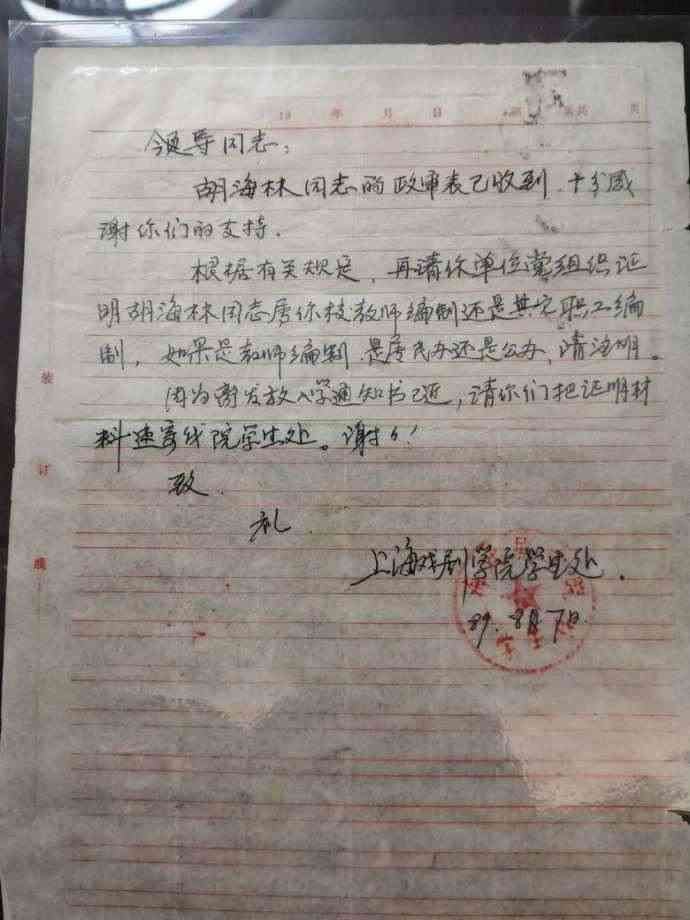 19 年 月 日 第 页共 页
领导同志：
胡海林同志的政审表已收到，十分感
谢你们的支持．
根据有关规定，再请你单位党组织证
明胡海林同志属你校教师编制还是其它职工编
制，如果是教师编制，是属民办还是公办，请注明。
因为离发放入学通知书已近，请你们把证明材
料速寄我院学生处。谢々！
致
礼
上海戏剧学院学生处．
89．8月7日
学生处
装
订
线